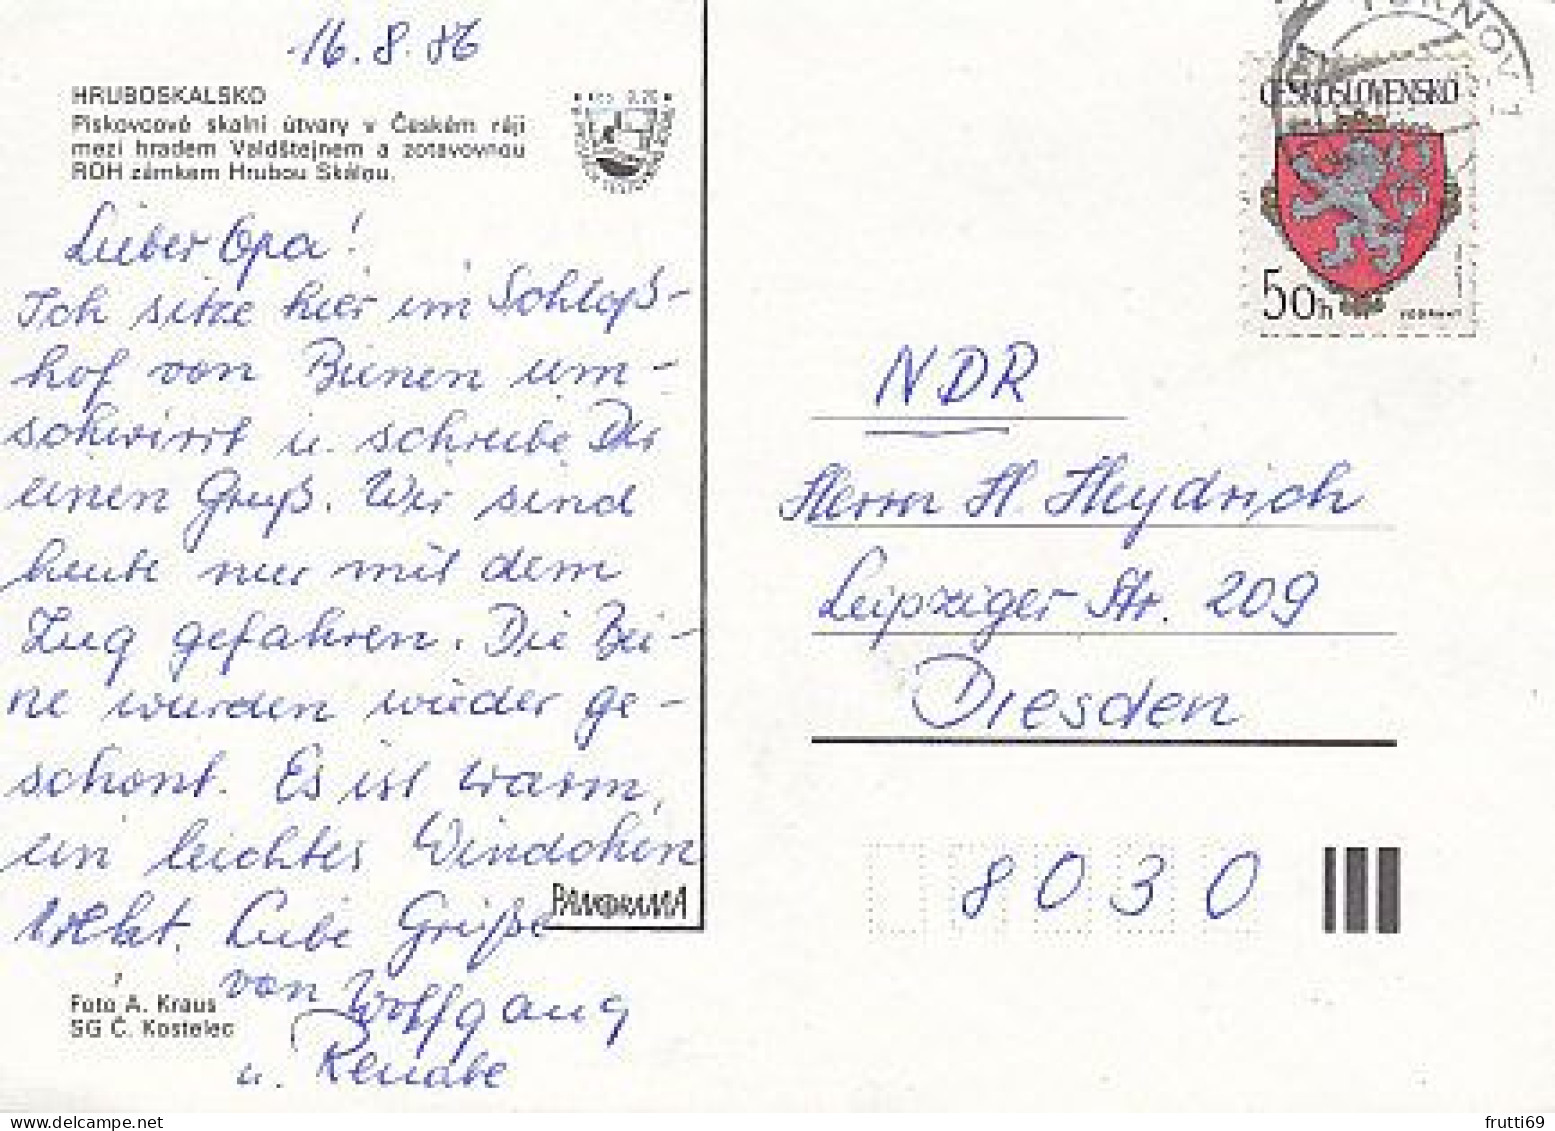 16.8.86
HRUBOSKALSKO
Pískovcové skalní útvary v Českém ráji
mezi hradem Valdštejnem a zotavovnou
ROH zámkem Hrubou Skálou.
Lieber Opa!
Ich sitze hier im Schloß-
hof von Bienen um-
schwirrt u. schreibe Dir
einen Gruß. Wir sind
heute nur mit dem
Zug gefahren. Die Bei-
ne wurden wieder ge-
schont. Es ist warm,
ein leichtes Windchen
weht. Liebe Grüße
von Wolfgang
u. Renate
PANORAMA
Foto A. Kraus
SG Č. Kostelec
TURNOV 1
ČESKOSLOVENSKO
50h
NDR
Herrn H. Heydrich
Leipziger Str. 209
Dresden
8030
frutti69